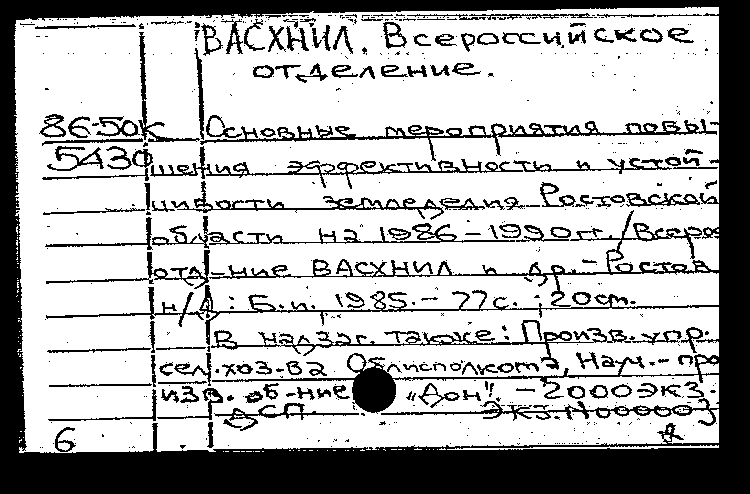 ВАСХНИЛ. Всероссийское
отделение.
86-50к Основные мероприятия повы-
5430 шения эффективности и устой-
чивости земледелия Ростовской
области на 1986-1990гг. / Всерос
отд-ние ВАСХНИЛ и др. - Ростов
н/Д : Б.и., 1985. - 77с. ; 20см.
В надзаг. также: Произв. упр.
сел. хоз-ва Облисполкома, Науч.-про
изв. об-ние "Дон". - 2000экз.
ДСП. Экз. N00003
6